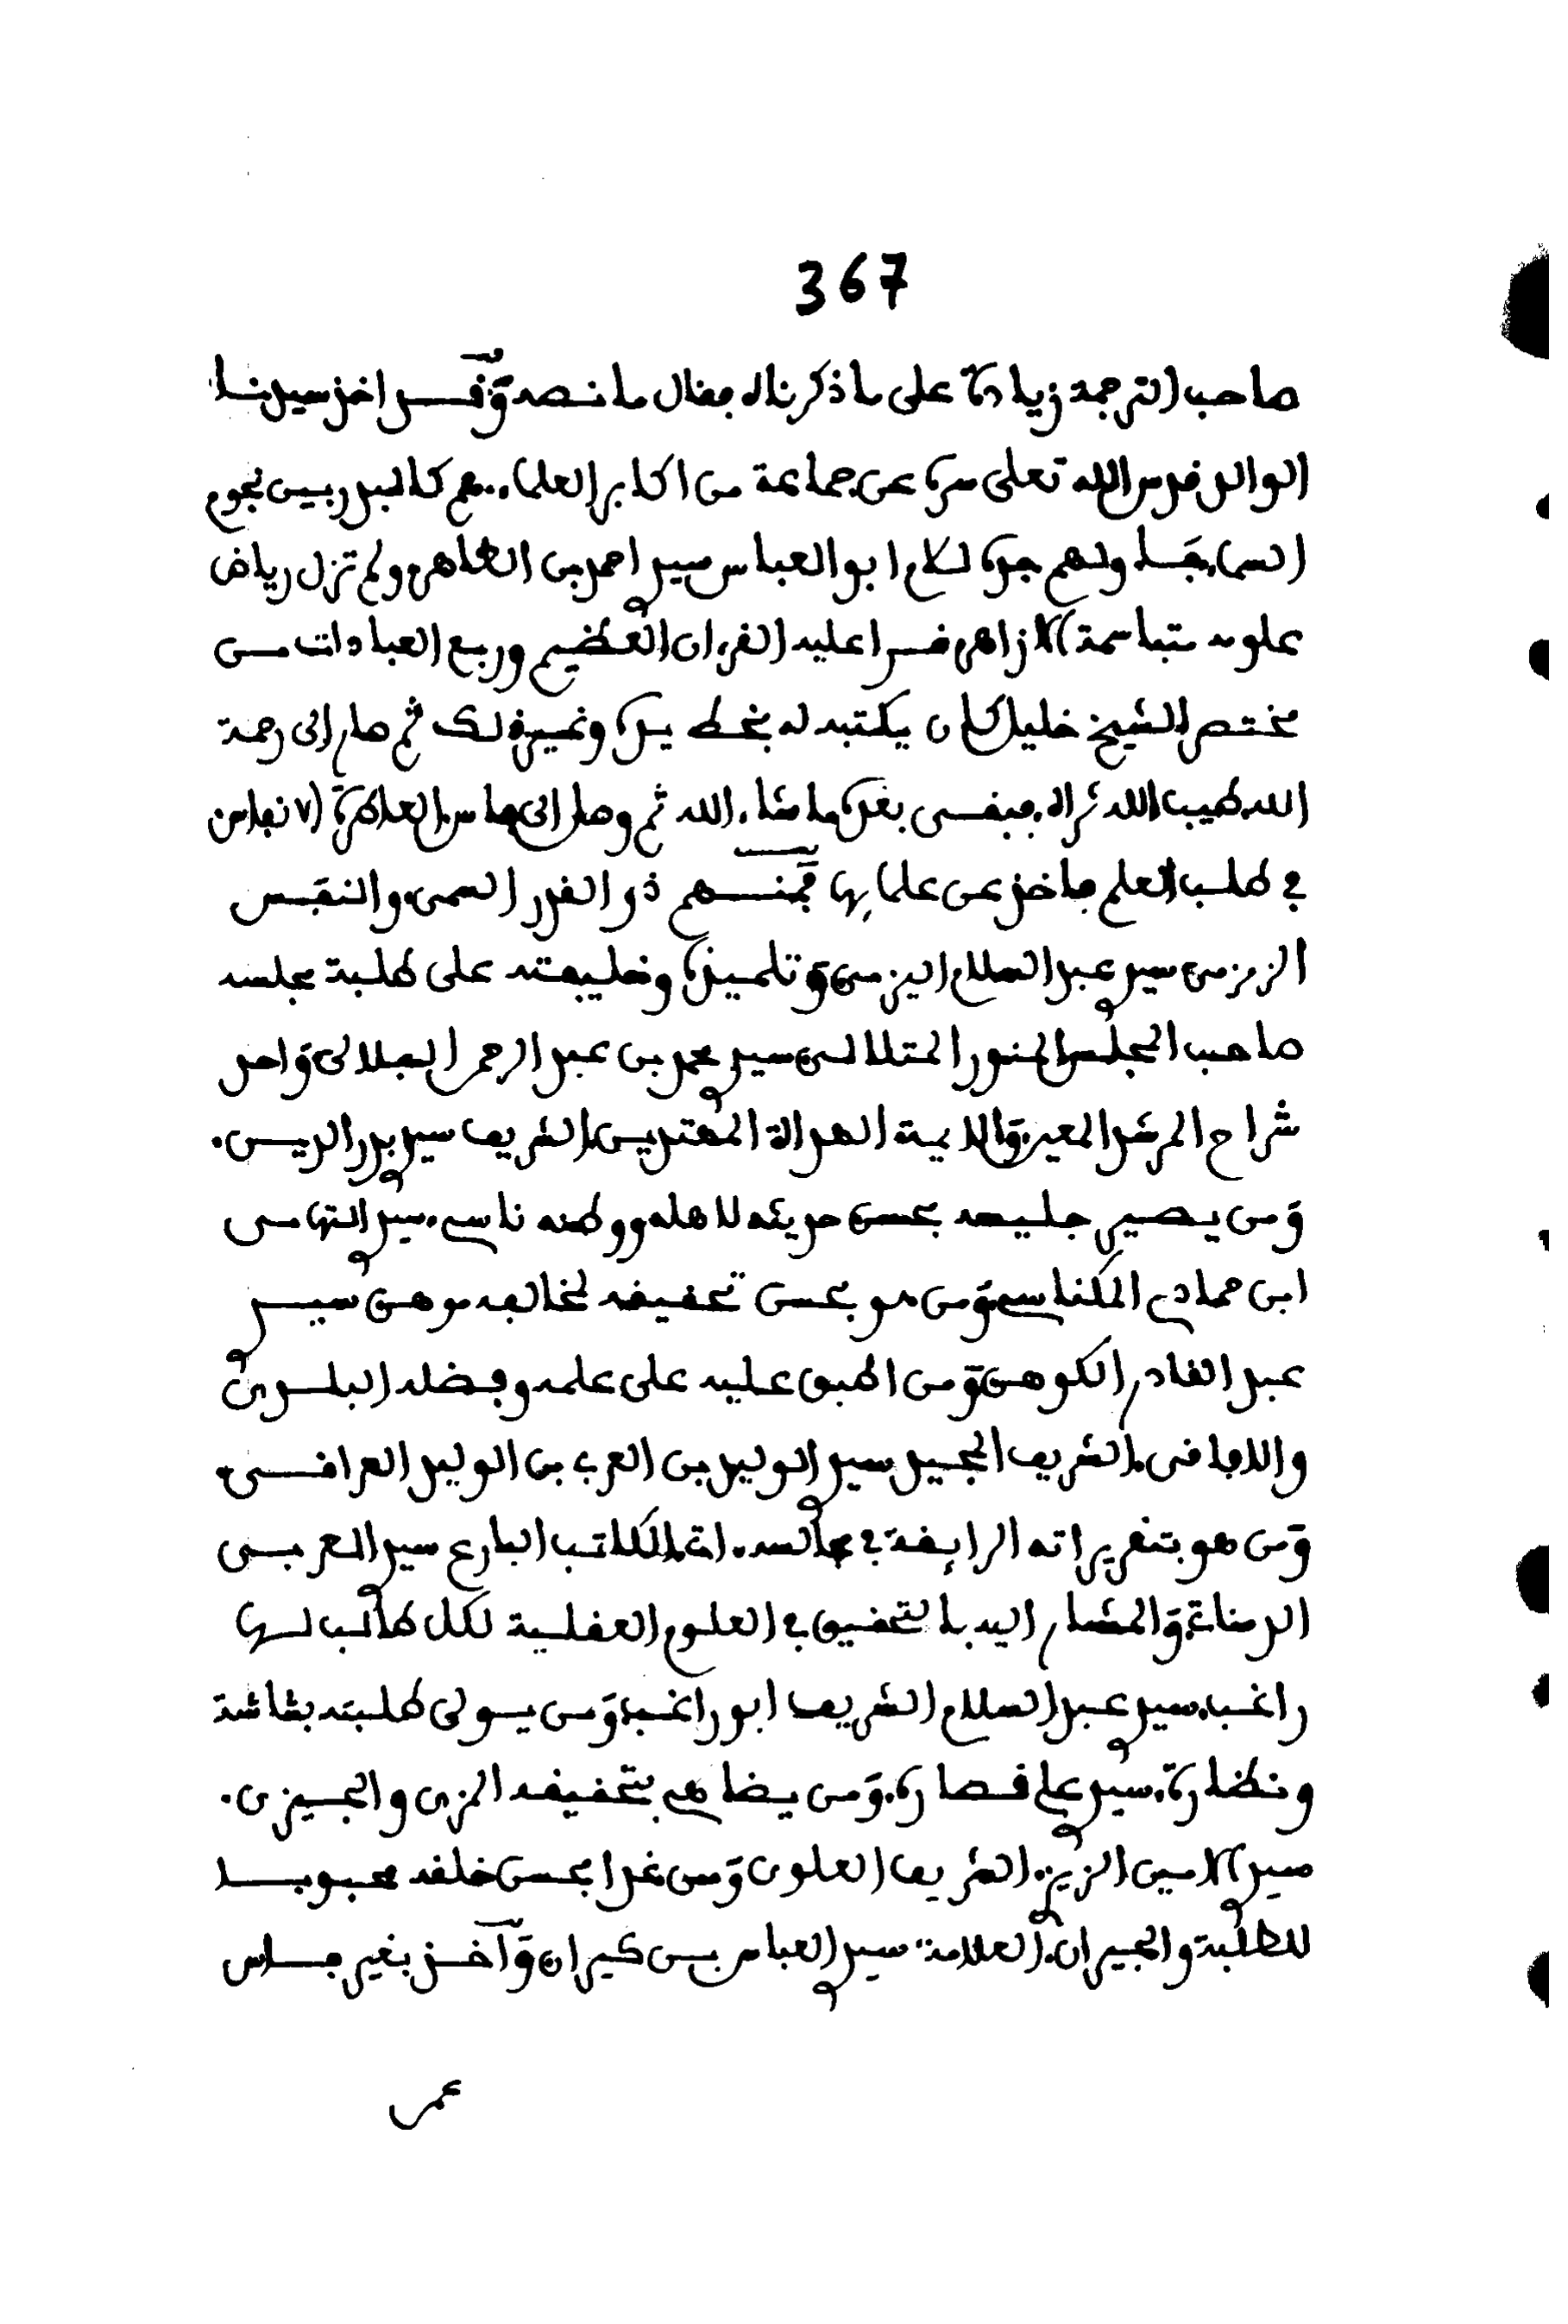 367
صاحب الترجمة زيادة على ما ذكرناه فقال ما نصه وقد اخذ سيدنا
الوالد قدس الله تعلى سره عن جماعة من اكابر العلماء هم كالبدر بين نجوم
السماء فجدا ولهم جده لام ابو العباس سيد احمد بن الطاهر ولم تزل رياض
علومه متباسمة الازاهر قرا عليه القرءان العظيم وربع العبادات مسن
مختصر الشيخ خليل كان يكتبه له بخط يده وغير ذلك ثم صار الى رحمة
الله طيب الله ثراه فبقى بعده ما شاء الله ثم وصار الى فاس العاطرة الانفاس
في طلب العلم فاخذ عن علمايها فمنهم ذو القدر السمى والنفس
الزمزمى سيد عبد السلام اليزمى وتلميذه وخليفته على طلبة مجلسه
صاحب المجلس المنور المتلالى سيد محمد بن عبد الرحمن الفلالى واحد
شراح المرشد المعين والامية الهداة المهتدين الشريف سيد بدر الدين.
ومن يصير جليسه بحسن حديثه لاهله ووطنه ناسي سيد التهامى
ابن حمادي المكناسي ومن هو بحسن تحقيقه لمخالفه موهن سيد
عبد القادر الكوهن ومن اطبق عليه على علمه وفضله البلدى
والافاقى الشريف المجيد سيد الوليد بن العرب بن الوليد العراقى
ومن هو بتقريراته الرايقة في مجالسه ات الكاتب البارع سيد العربى
الدمناتى والمشار اليه بالتحقيق في العلوم العقلية لكل طالب لها
راغب سيد عبد السلام الشريف ابو راغب ومن يولى طلبته بشاشة
ونظارة سيد على قصارة ومن يضاهي بتحقيقه المزى والجيزى.
سيد الامين الزيزى الشريف العلوى ومن غدا بحسن خلقه محبوبا
للطلبة والجيران العلامة سيد العباس بن كيران واخذ بغير فاس
عمن